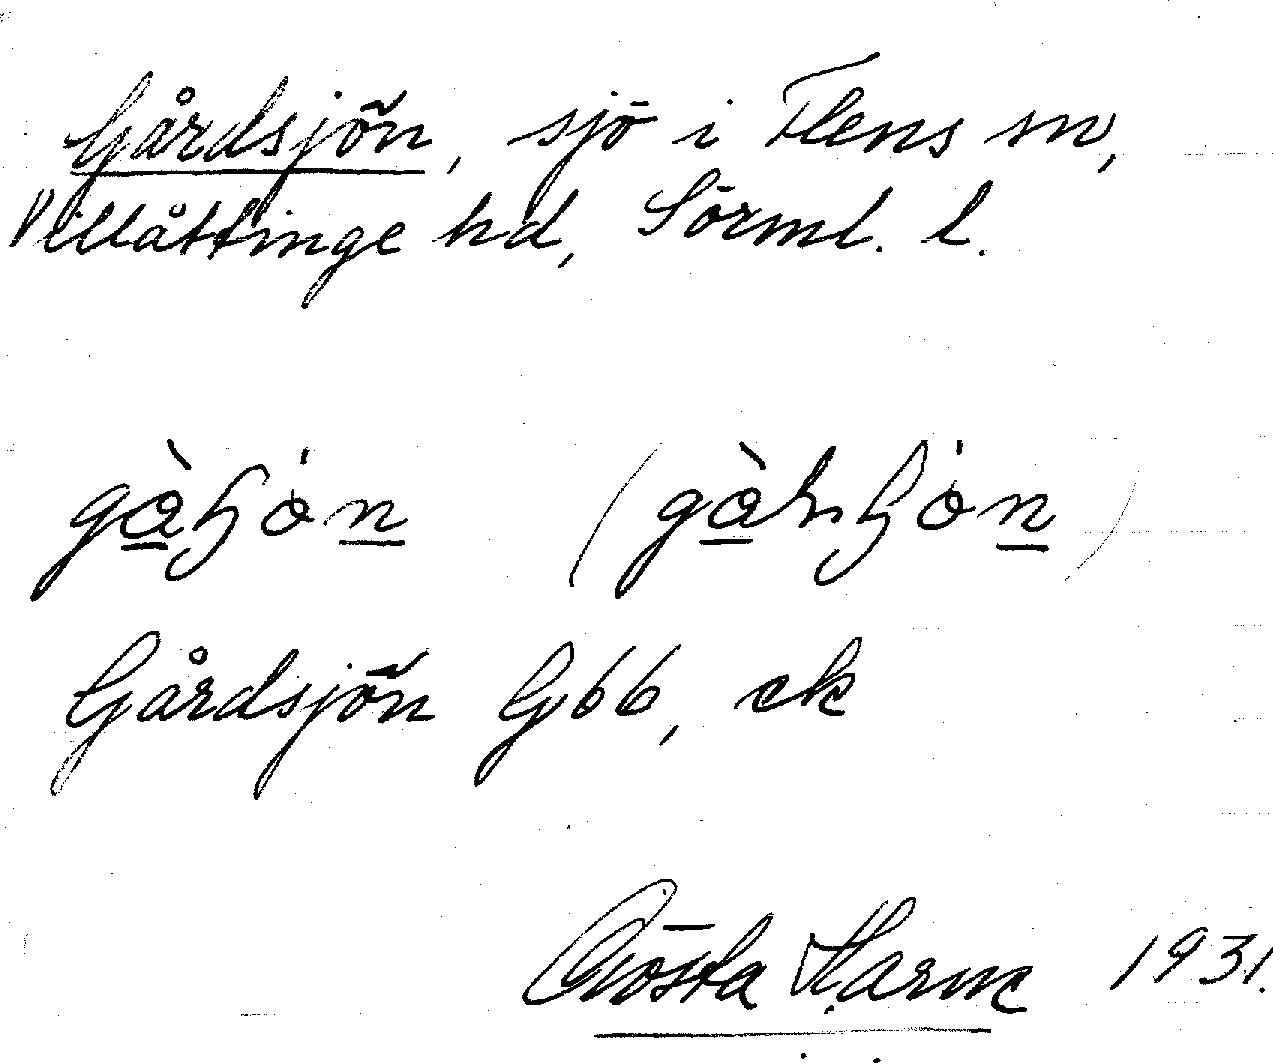 Gårdsjön, sjö i Flens sn,
Villåttinge hd, Sörml. l.
Gårdsjön G66, ek
Gösta Harne 1931.